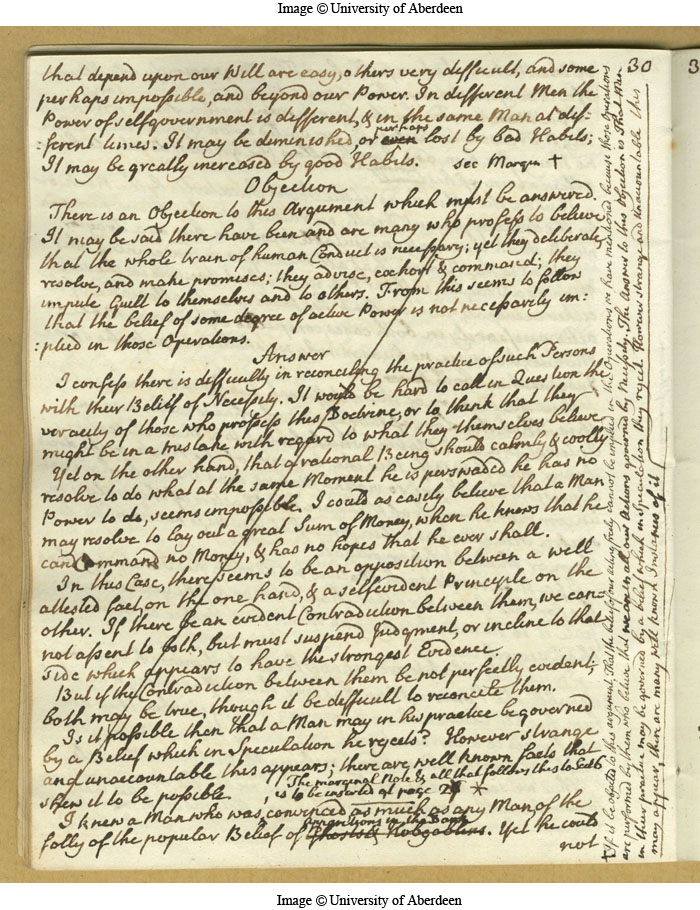 Image © University of Aberdeen
30
that depend upon our Will are easy, others very difficult, and some
perhaps impossible, and beyond our Power. In different Men the
Power of selfgovernment is different, & in the same Man at dif-
:ferent times. It may be deminished, or even perhaps lost by bad Habits;
It may be greatly increased by good Habits. see Margin †
Objection
There is an Objection to this Argument which must be answered.
It may be said there have been and are many who profess to believe
that the whole train of human Conduct is necessary; yet they deliberate
resolve, and make promises; they advise, exhort & command; they
impute Guilt to themselves and to others. From this seems to follow
that the belief of some degree of active Power is not necessarily im:
:plied in those Operations.
Answer
I confess there is difficulty in reconciling the practice of such Persons
with their Belief of Necessity. It would be hard to call in Question the
veracity of those who profess this Doctrine, or to think that they
might be in a mistake with regard to what they themselves believe
Yet on the other hand, that a rational Being should calmly & coolly
resolve to do what at the same Moment he is perswaded he has no
Power to do, seems impossible. I could as easely believe that a Man
may resolve to lay out a great Sum of Money, when he knows that he
can Command no Money, & has no hopes that he ever shall.
In this Case, there seems to be an opposition between a well
attested fact, on the one hand, & a selfevident Principle on the
other. If there be an evident Contradiction between them, we can
not assent to both, but must suspend Judgment, or incline to that
side which appears to have the strongest Evidence.
But if the Contradiction between them be not perfectly evident;
both may be true, though it be difficult to reconcile them.
Is it possible then that a Man may in his practice be governed
by a Belief which in Speculation he rejects? However strange
and unaccountable this appears; there are well known facts that
shew it to be possible. The marginal Note & all that follows this to Sect 6
is to be inserted at page *
I knew a Man who was convinced as much as any Man of the
folly of the popular Belief of Apparitions in the Dark Ghosts & Hobgoblins. Yet he could
not
† If it be objected to this argument, That the belief of our acting freely cannot be implied in the Operations we have mentioned because those Operations
are performed by them who believe that we are in all our Actions governed by Necessity. The Answer to this Objection is That Men
in their practice may be governed by a belief which in Speculation they reject. However strange and unaccountable this
may appear, there are many well known Instances of it
Image © University of Aberdeen